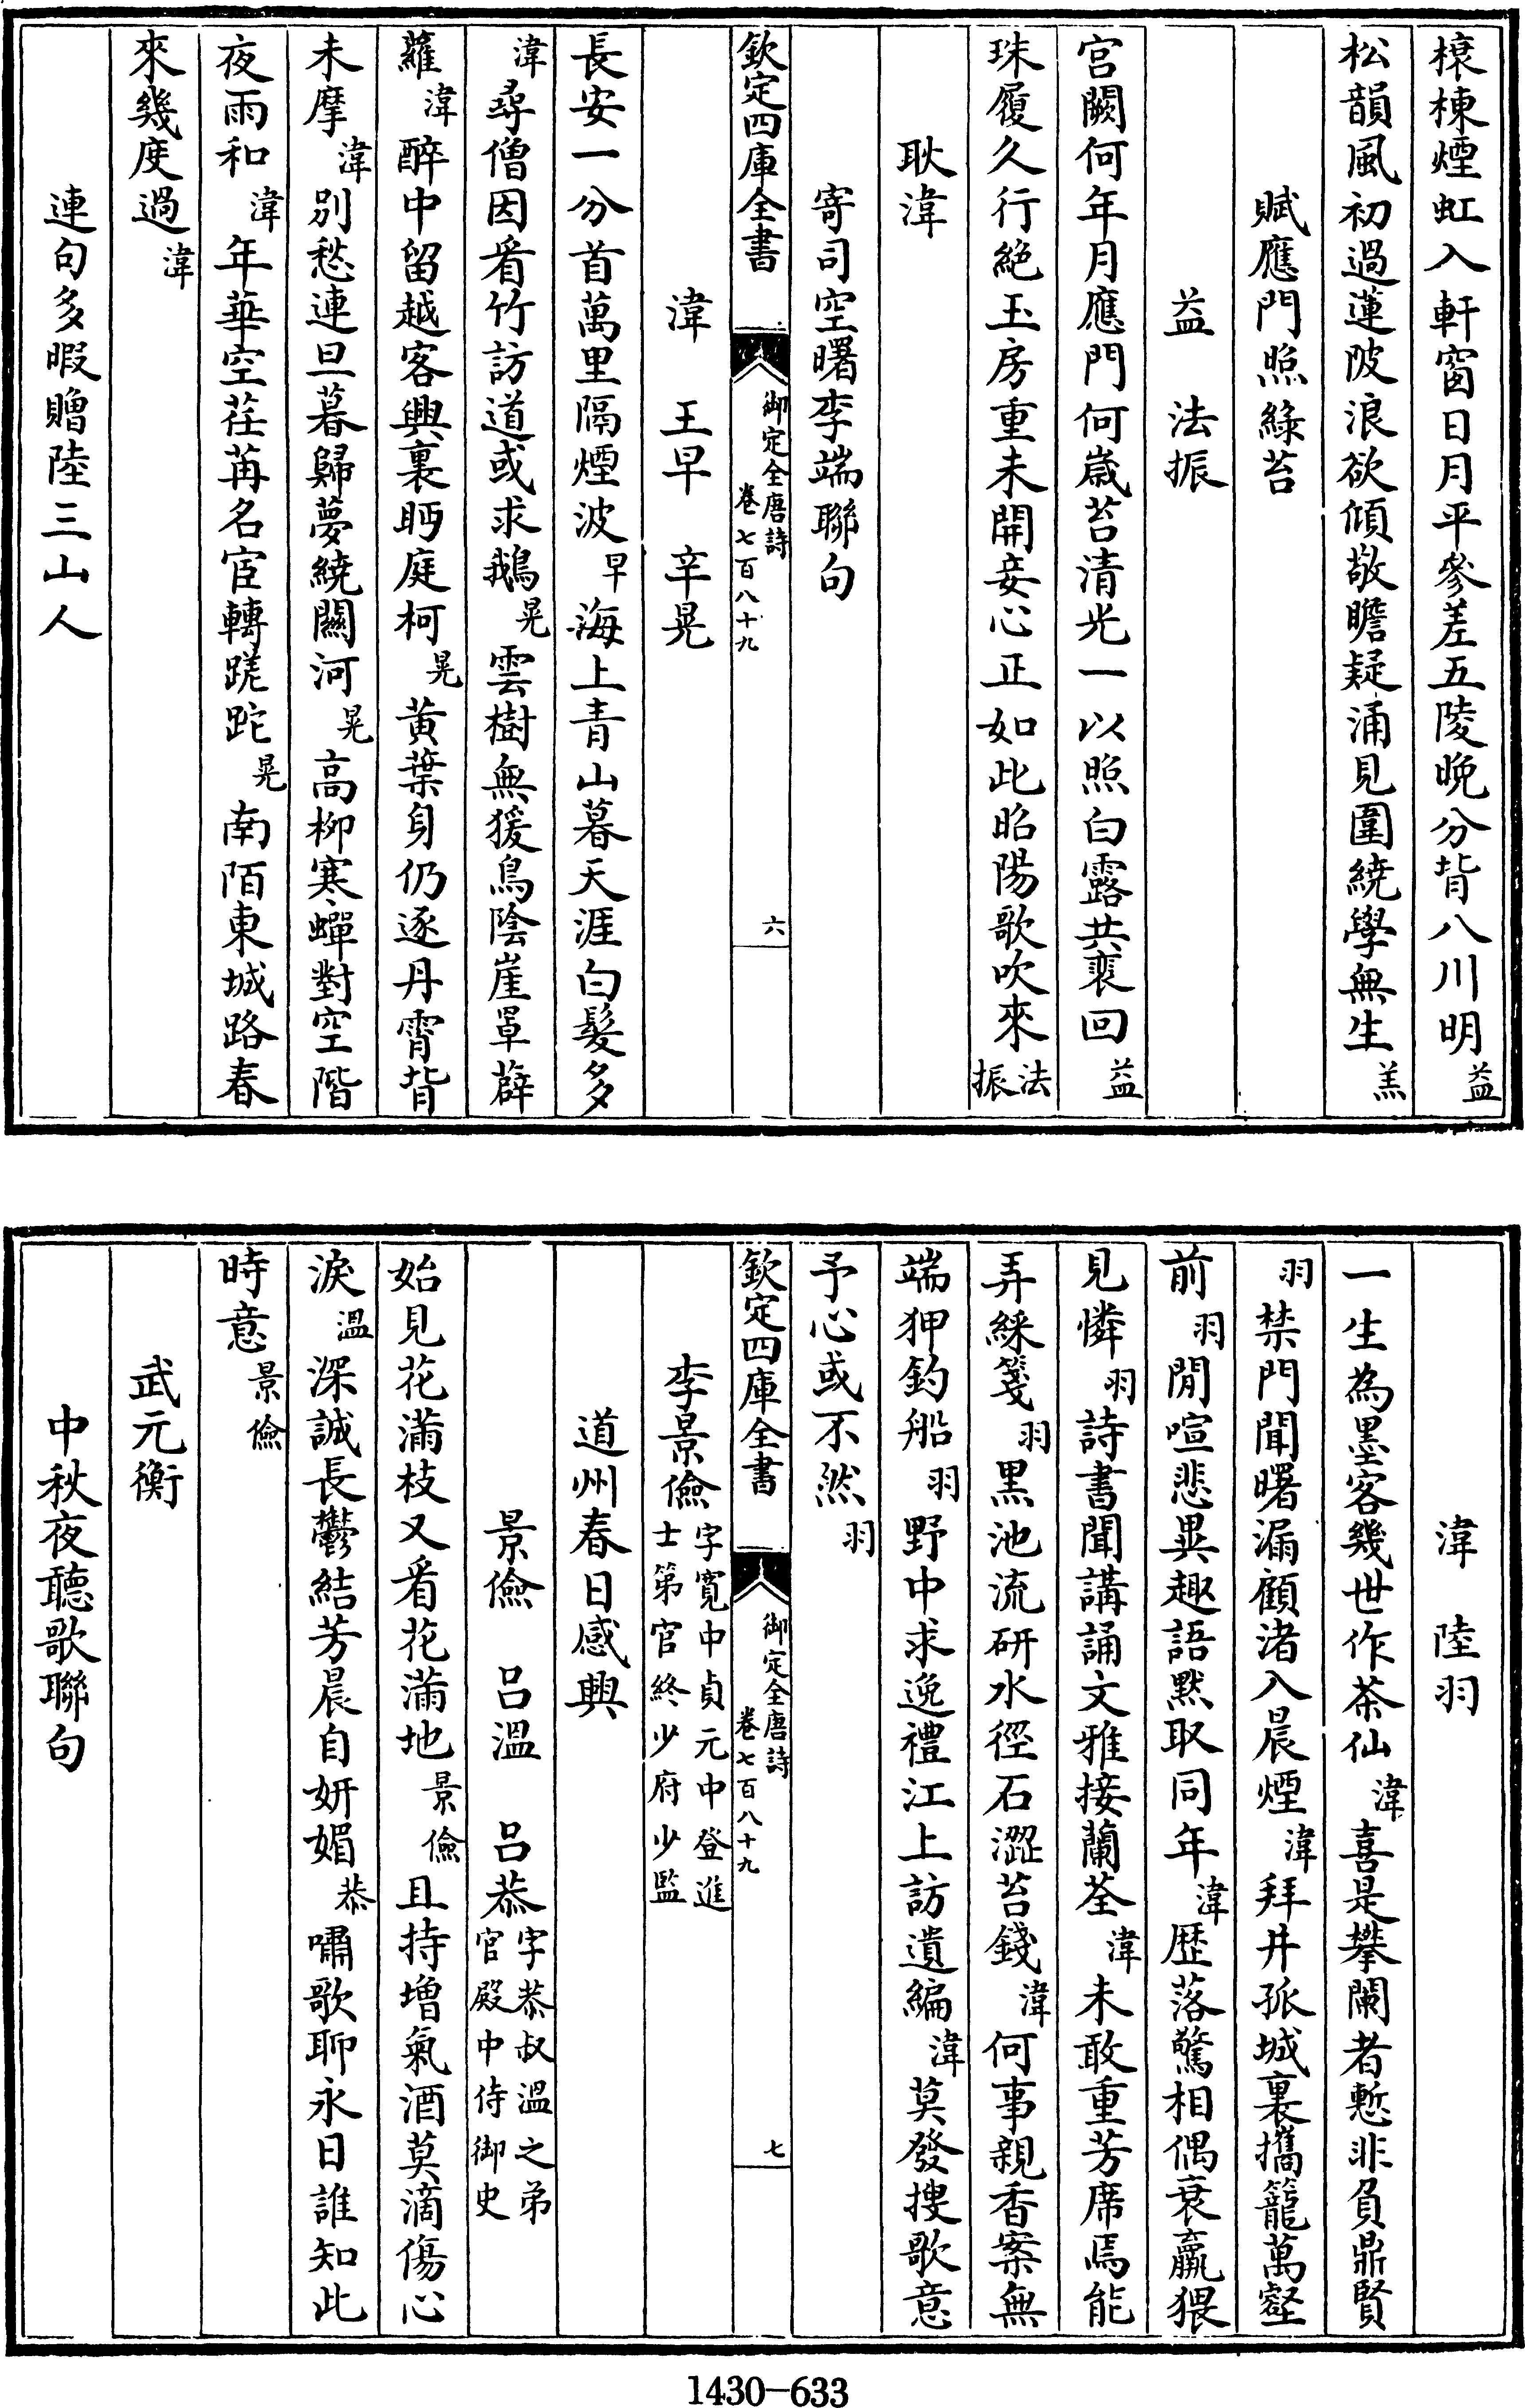 榱棟煙虹入軒窗日月平參差五陵晚分背八川明益
松韻風初過蓮陂浪欲傾敬瞻疑涌見圍繞學無生羔
賦應門照綠苔
益　法振
宮闕何年月應門何歲苔清光一以照白露共裵回益
珠履久行絕玉房重未開妾心正如此昭陽歌吹來法振
耿湋
寄司空曙李端聯句
欽定四庫全書　御定全唐詩　卷七百八十九　六
湋　王早　辛晃
長安一分首萬里隔煙波早海上青山暮天涯白髮多
湋尋僧因看竹訪道或求鵝晃雲樹無猨鳥陰崖罩薜
蘿湋醉中留越客興裏眄庭柯晃黄葉身仍逐丹霄背
未摩湋別愁連旦暮歸夢繞關河晃高柳寒蟬對空階
夜雨和湋年華空荏苒名宦轉蹉跎晃南陌東城路春
來幾度過湋
連句多暇贈陸三山人
湋　陸羽
一生為墨客幾世作茶仙湋喜是攀闌者慙非負鼎賢
羽禁門聞曙漏顧渚入晨煙湋拜井孤城裏攜籠萬壑
前羽閒喧悲異趣語默取同年湋歴落驚相偶衰羸猥
見憐羽詩書聞講誦文雅接蘭荃湋未敢重芳席焉能
弄綵箋羽黑池流研水徑石澀苔錢湋何事親香案無
端狎釣船羽野中求逸禮江上訪遺編湋莫發搜歌意
予心或不然羽
欽定四庫全書　御定全唐詩　卷七百八十九　七
李景儉字寛中貞元中登進士第官終少府少監
道州春日感興
景儉　呂溫　呂恭字恭叔溫之弟官殿中侍御史
始見花滿枝又看花滿地景儉且持增氣酒莫滴傷心
淚溫深誠長鬱結芳晨自妍媚恭嘯歌聊永日誰知此
時意景儉
武元衡
中秋夜聽歌聯句
1430-633